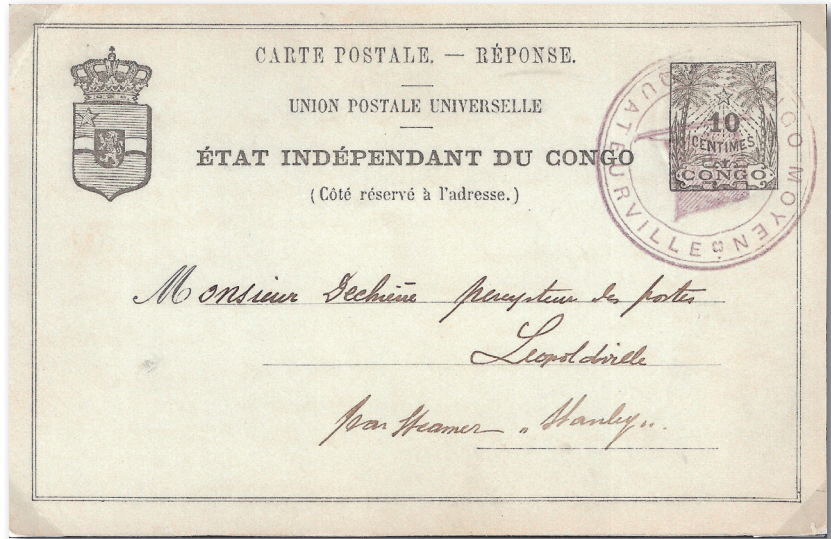 CARTE POSTALE. — RÉPONSE.
UNION POSTALE UNIVERSELLE
ÉTAT INDÉPENDANT DU CONGO
(Côté réservé à l'adresse.)
10
CENTIMES
CONGO
QUATEURVILLE
NGO MOYEN
Monsieur percepteur des postes
Leopoldville
par Steamer „ Stanley".